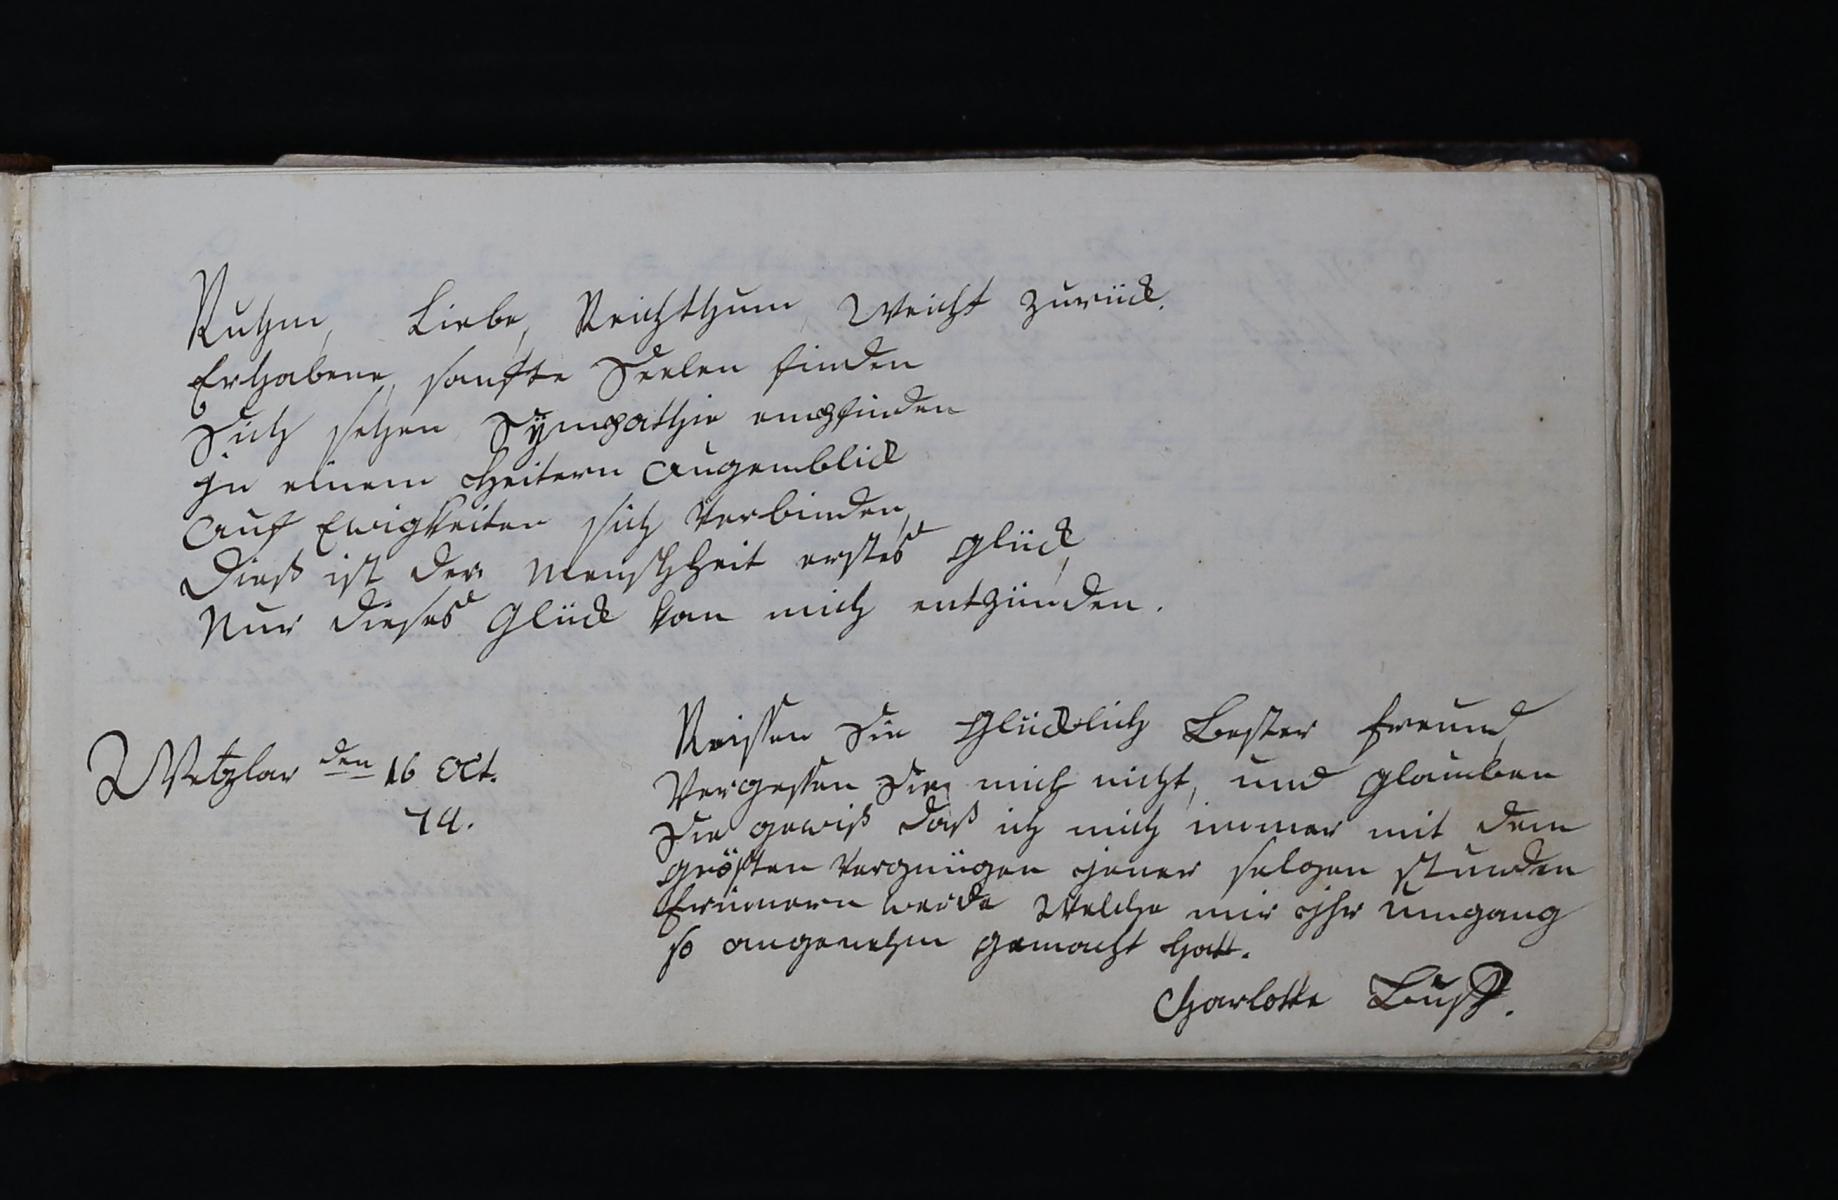 Ruhm, Liebe, Reichthum, Weicht zurück.
Erhabene, sanfte Seelen finden
Sich sehen Sympathie empfinden
jn einem Heitern Augenblick
Auf Ewigkeiten sich Verbinden,
Dieß ist der Menschheit erstes Glück,
Nur dieses Glück kan mich entzünden.
Reissen Sie Glücklich Bester Freund,
Vergessen Sie mich nicht, und glauben
Sie gewiß daß ich mich immer mit dem
grösten Vergnügen jener selgen stunden
Erinnern werde Welche mir jhr Umgang
so angenehm gemacht hatt.
Wetzlar den 16 Oct.
74.
Charlotte Buff.